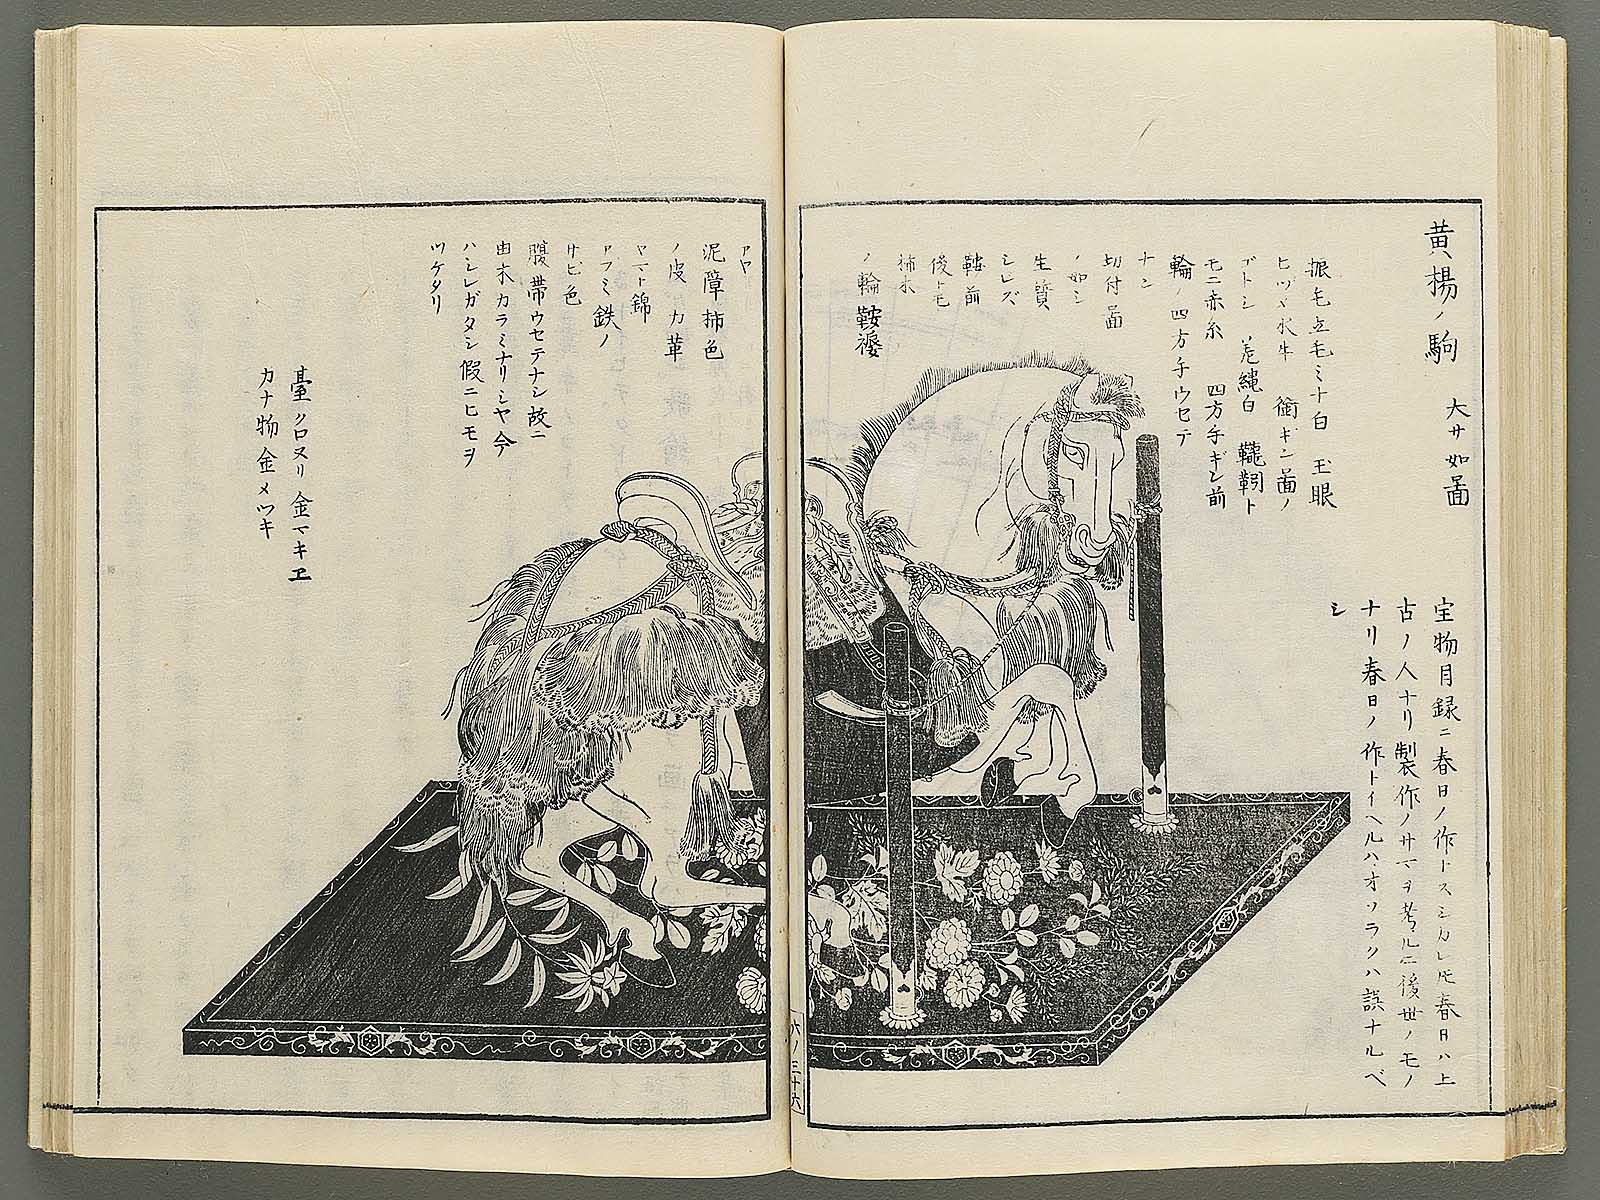 黄楊ノ駒
大サ如啚
宝物目録ニ春日ノ作トスシカレ𪜈春日ハ上
古ノ人ナリ製作ノサマヲ考ルニ後世ノモノ
ナリ春日ノ作トイヘルハオソラクハ誤ナルベ
シ
振毛立毛ミナ白 玉眼
ヒヅメ水牛 銜ギン啚ノ
ゴトシ 差縄白
モニ赤糸 四方手ギン前
輪ノ四方手ウセテ
ナシ
切付啚
ノ如シ
生贄
シレズ
鞍前
後トモ
柿木
ノ輪 鞍褥
アヤ
泥障柿色
ノ皮 力革
ヤマト錦
アフミ鉄ノ
サビ色
腹帯ウセテナシ故ニ
由木カラミナリシヤ今
ハシレガタシ假ニヒモヲ
ツケタリ
臺クロヌリ金マキヱ
カナ物金メツキ
六ノ三十六